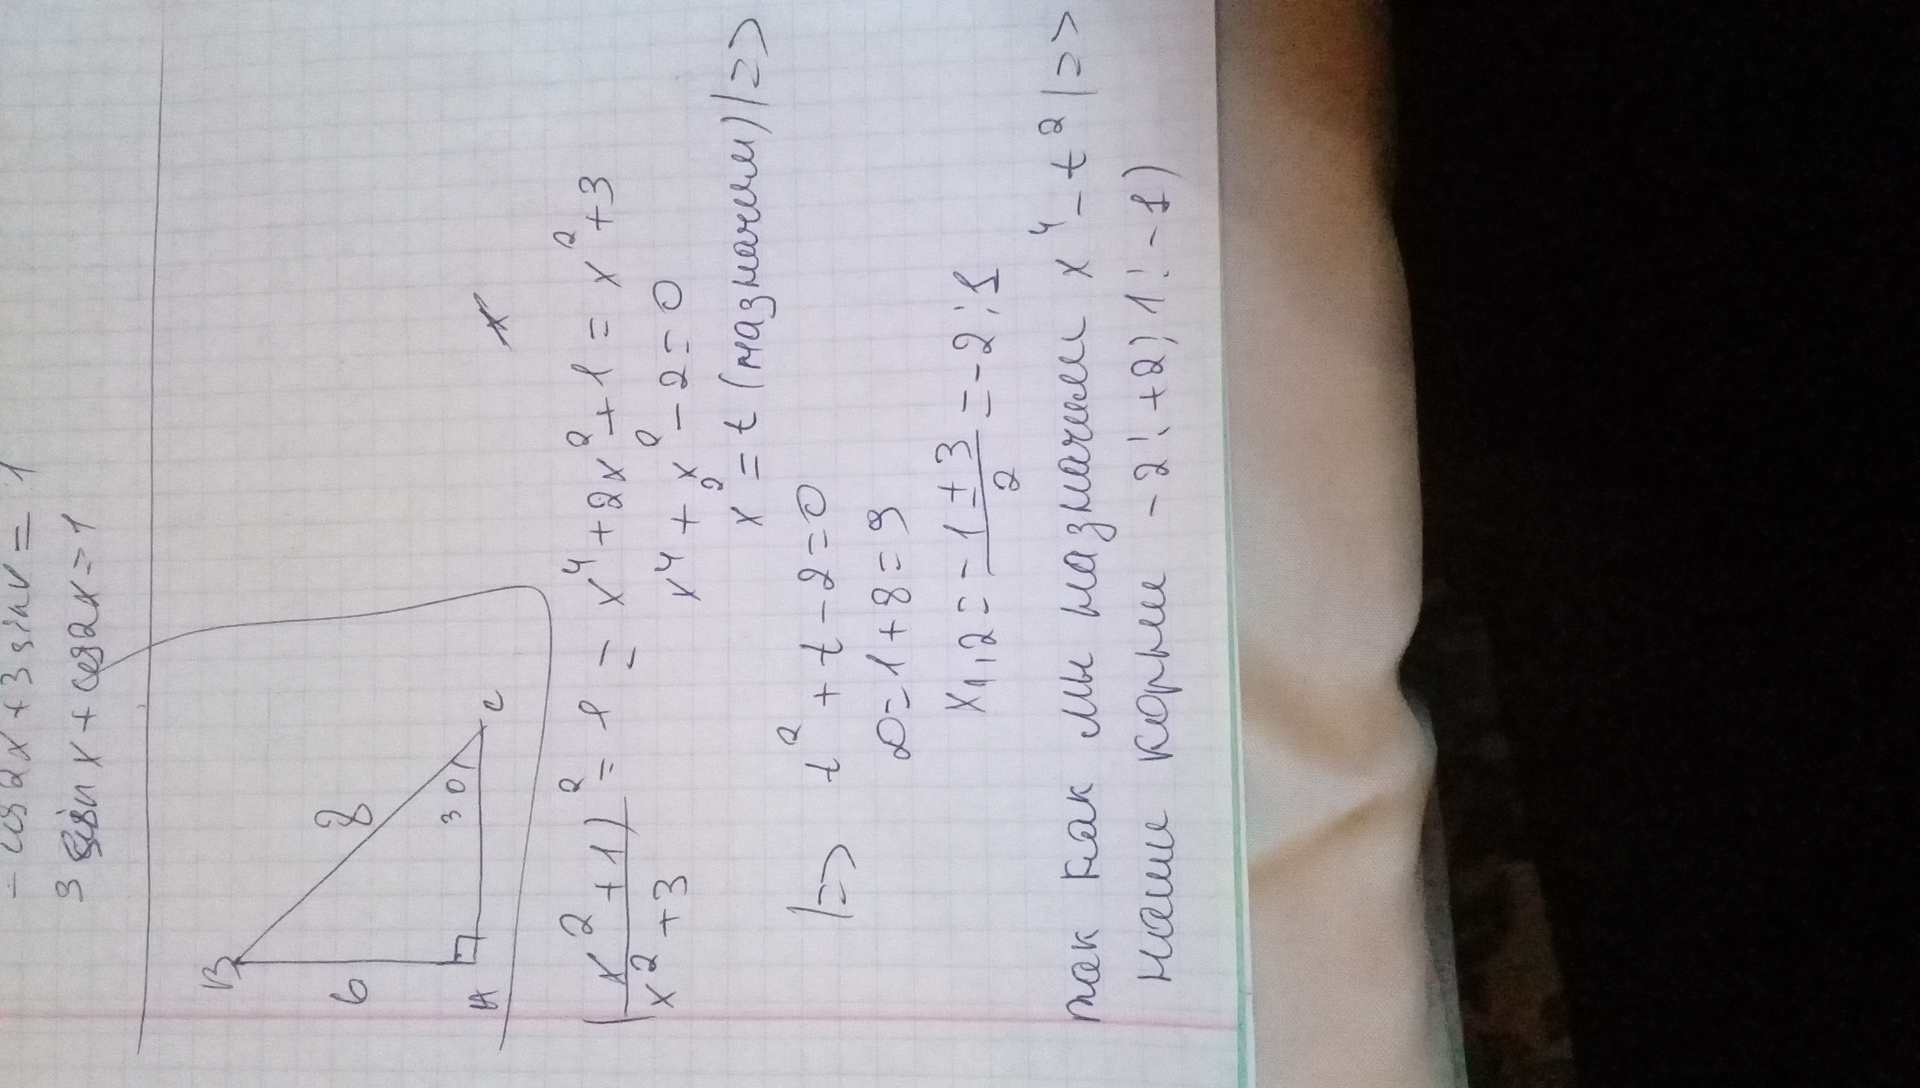 - cos2x + 3 sinx = 1
3 sin x + cos2x = 1
B
8
6
30
A
C
x
(x² + 1)² / x² + 3 = 1 = x⁴ + 2x² + 1 = x² + 3
x⁴ + x² - 2 = 0
x² = t (назначем) |=>
|=> t² + t - 2 = 0
D = 1 + 8 = 9
x₁,₂ = -1 ± 3 / 2 = -2; 1
так как мы назначем x⁴ - t² |=>
наши корни - 2; +2; 1; -1)